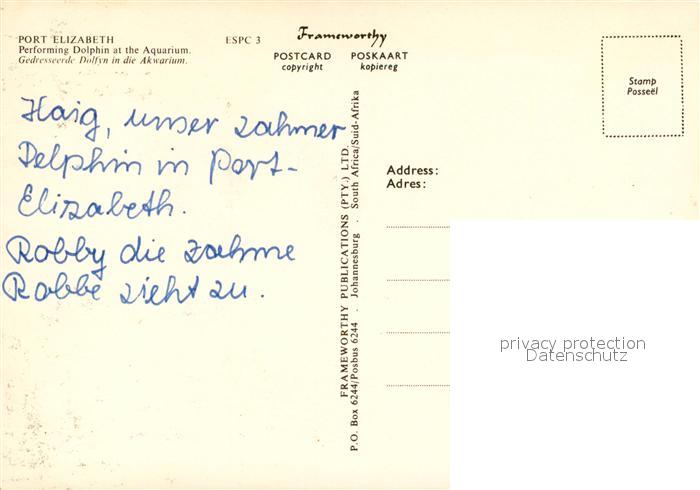 PORT ELIZABETH
Performing Dolphin at the Aquarium.
Gedresseerde Dolfyn in die Akwarium.
ESPC 3
Frameworthy
POSTCARD POSKAART
copyright kopiereg
Stamp
Posseël
Haig, unser zahmer
Delphin in Port-
Elizabeth.
Robby die zahme
Robbe zieht zu.
FRAMEWORTHY PUBLICATIONS (PTY.) LTD.
P.O. Box 6244/Posbus 6244 . Johannesburg . South Africa/Suid-Afrika
Address:
Adres:
privacy protection
Datenschutz